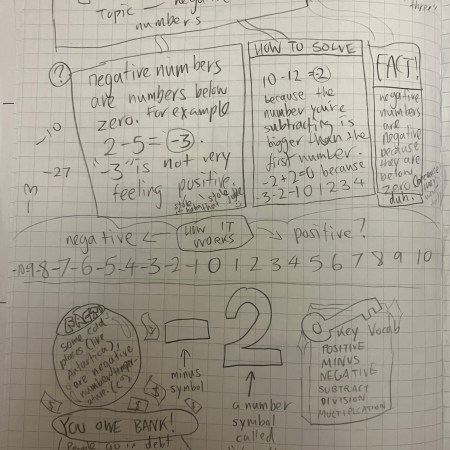 Topic — negative
numbers
?
negative numbers
are numbers below
zero. For example
2-5=-3.
"-3" is not very
feeling positive.
-10
-27
HOW TO SOLVE
10-12=-2
because the
number you're
subtracting is
bigger than the
first number.
-2+2=0 because
-3-2-10 1 2 3 4
FACT!
negative
numbers
are
negative
because
they are
below
zero
duh.
negative
HOW IT
WORKS
positive?
-10-9-8-7-6-5-4-3-2-1 0 1 2 3 4 5 6 7 8 9 10
FACTS
Some cold
places (like
Antartica)
are negative
number
-
2
minus
symbol
a number
symbol
called
Key Vocab
POSITIVE
MINUS
NEGATIVE
SUBTRACT
DIVISION
MULTIPLICATION
$
$
$
YOU OWE BANK!
People go in debt